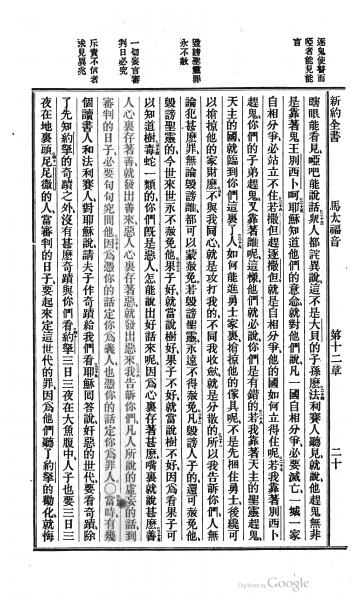 逐鬼使瞽而
啞者能見能
言
毀謗聖靈罪
永不赦
一切妄言審
判日必究
斥責不信者
求見異兆
新約全書
馬太福音
第十二章
二十
瞎眼能看見啞吧能說話衆人都詫異說這不是大闢的子孫麽法利賽人聽見就說他趕鬼無非
是靠著鬼王別西卜呵耶穌知道他們的意念就對他們說凡一國自相分爭必要滅亡一城一家
自相分爭必站立不住若撒但趕逐撒但就是自相分爭他的國如何立得住呢若我靠著別西卜
趕鬼你們的子弟趕鬼又靠著誰呢這樣他們就必說你們是有錯的若我靠著天主的聖靈趕鬼
天主的國就臨到你們這裏了人如何能進勇士家裏搶掠他的傢具呢不是先捆住勇士後纔可
以搶掠他的家財麽不與我同心就是攻打我的不同我收斂就是分散的所以我告訴你們人無
論犯甚麽罪無論毀謗誰都可以蒙赦免若毀謗聖靈永遠不得赦免凡毀謗人子的還可赦免他
毀謗聖靈的今世來世永不赦免他果子好就當說樹好果子不好就當說樹不好因爲看果子可
以知道樹毒蛇一類的你們既是惡人怎能說出好話來呢因爲心裏存著甚麽嘴裏就說甚麽善
人心裏存著善就發出善來惡人心裏存著惡就發出惡來我告訴你們凡人所說的虛妄的話到
審判的日子必要句句究問他因爲憑你的話定你爲義人也憑你的話定你爲罪人〇當時有幾
個讀書人和法利賽人對耶穌說請夫子作奇蹟給我們看耶穌回答說奸惡的世代要看奇蹟除
了先知約拏的奇蹟之外沒有甚麽奇蹟與你們看約拏三日三夜在大魚腹中人子也要三日三
夜在地裏頭尼尼微的人當審判的日子要起來定這世代的罪因爲他們聽了約拏的勸化就悔
Digitized by Google